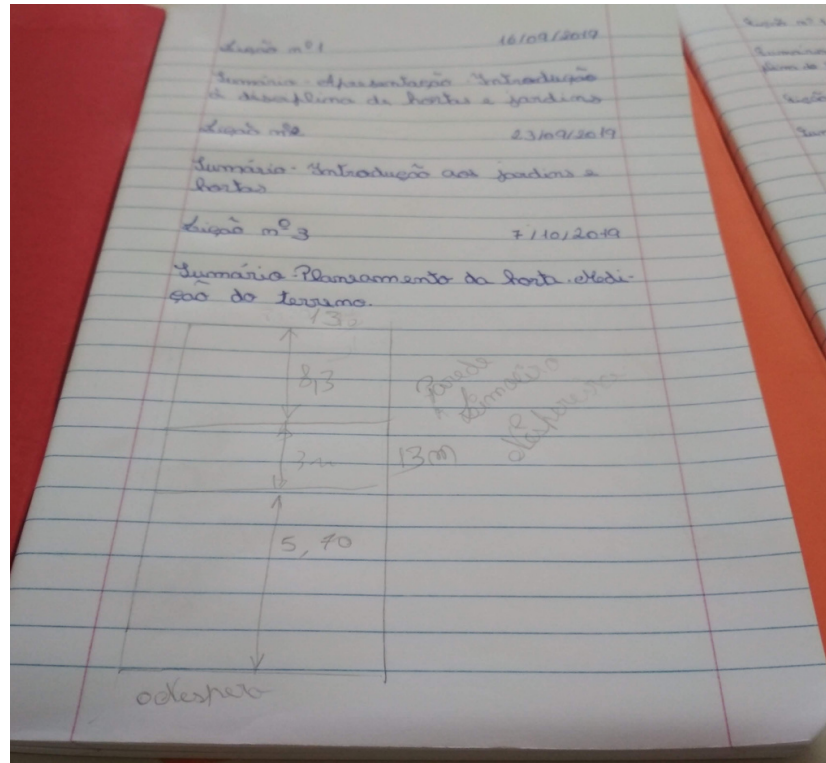 Lição nº 1 16/09/2019
Sumário - Apresentação Introdução
à disciplina de hortas e jardins
Lição nº2 23/09/2019
Sumário - Introdução aos jardins e
hortas
Lição nº 3 7/10/2019
Sumário - Planeamento da horta. Medi-
ção do terreno.
13
8,3
Parede
Limoeiro
3m
13m
5,70